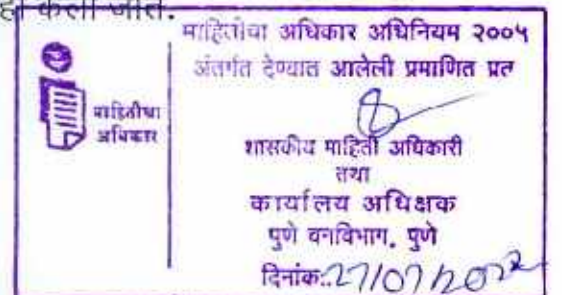 केली जाते.
माहितीचा अधिकार अधिनियम २००५
अंतर्गत देण्यात आलेली प्रमाणित प्रत
माहितीचा
अधिकार
शासकीय माहिती अधिकारी
तथा
कार्यालय अधिक्षक
पुणे वनविभाग, पुणे
दिनांक:.27/07/2022